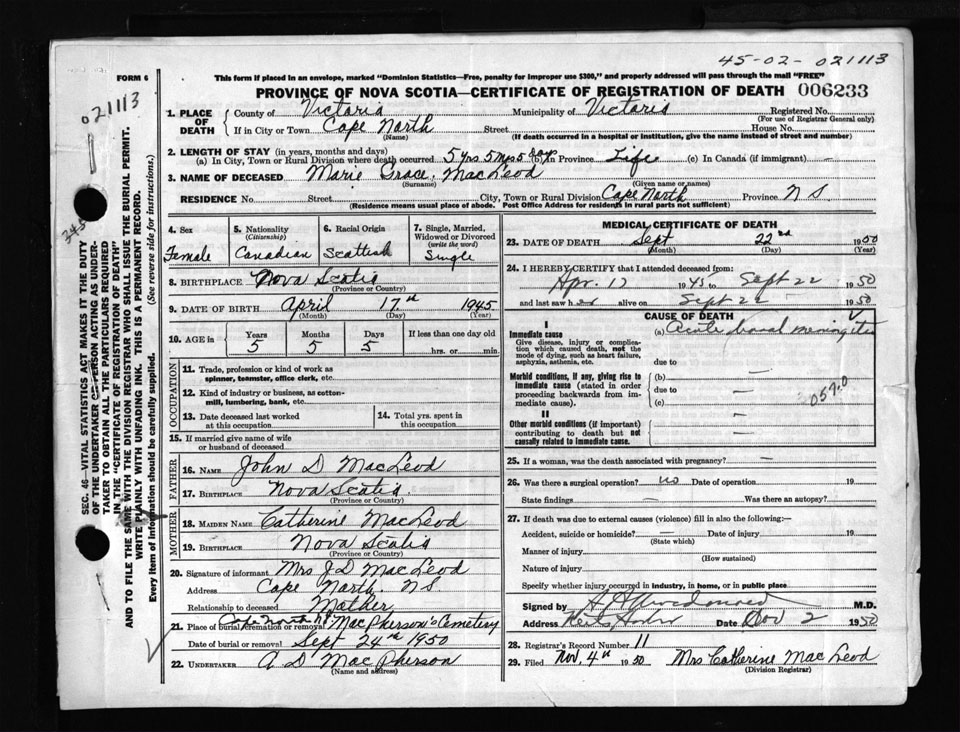 45-02-021113
FORM 6
This form if placed in an envelope, marked "Dominion Statistics—Free, penalty for improper use $300," and properly addressed will pass through the mail "FREE"
PROVINCE OF NOVA SCOTIA—CERTIFICATE OF REGISTRATION OF DEATH 006233
021113
343
SEC. 46—VITAL STATISTICS ACT MAKES IT THE DUTY
OF THE UNDERTAKER OR PERSON ACTING AS UNDER-
TAKER TO OBTAIN ALL THE PARTICULARS REQUIRED
IN THE "CERTIFICATE OF REGISTRATION OF DEATH"
AND TO FILE THE SAME WITH THE DIVISION REGISTRAR WHO SHALL ISSUE THE BURIAL PERMIT.
WRITE PLAINLY WITH UNFADING INK. THIS IS A PERMANENT RECORD.
Every item of information should be carefully supplied. (See reverse side for instructions.)
1. PLACE OF DEATH County of Victoria Municipality of Victoria Registered No.
(For use of Registrar General only)
If in City or Town Cape North Street House No.
(Name) (If death occurred in a hospital or institution, give the name instead of street and number)
2. LENGTH OF STAY (in years, months and days)
(a) In City, Town or Rural Division where death occurred 5 yrs 5 mos 5 days (b) In Province Life (c) In Canada (if immigrant) —
3. NAME OF DECEASED Marie Grace MacLeod
(Surname) (Given name or names)
RESIDENCE No. Street City, Town or Rural Division Cape North Province N S
(Residence means usual place of abode. Post Office Address for residents in rural parts not sufficient)
4. Sex Female
5. Nationality (Citizenship) Canadian
6. Racial Origin Scottish
7. Single, Married, Widowed or Divorced (write the word) Single
8. BIRTHPLACE Nova Scotia
(Province or Country)
9. DATE OF BIRTH April 17th 1945
(Month) (Day) (Year)
10. AGE in Years 5 Months 5 Days 5 If less than one day old
hrs. or min.
OCCUPATION
11. Trade, profession or kind of work as
spinner, teamster, office clerk, etc.
12. Kind of industry or business, as cotton-
mill, lumbering, bank, etc.
13. Date deceased last worked
at this occupation
14. Total yrs. spent in
this occupation
15. If married give name of wife
or husband of deceased
FATHER
16. NAME John D MacLeod
17. BIRTHPLACE Nova Scotia
(Province or Country)
MOTHER
18. MAIDEN NAME Catherine MacLeod
19. BIRTHPLACE Nova Scotia
(Province or Country)
20. Signature of informant Mrs J D MacLeod
Address Cape North. N S.
Relationship to deceased Mother
21. Place of burial cremation or removal Cape North MacPherson's Cemetery
Date of burial or removal Sept 24th 1950
22. UNDERTAKER A D MacPherson
(Name and address)
MEDICAL CERTIFICATE OF DEATH
23. DATE OF DEATH Sept 22nd 1950
(Month) (Day)
24. I HEREBY CERTIFY that I attended deceased from:
Apr. 17 1945 to Sept 22 1950
and last saw her alive on Sept 22 1950
CAUSE OF DEATH
I
Immediate cause
Give disease, injury or complica-
tion which caused death, not the
mode of dying, such as heart failure,
asphyxia, asthenia, etc.
(a) Acute basal meningitis
due to
Morbid conditions, if any, giving rise to
immediate cause (stated in order
proceeding backwards from im-
mediate cause).
(b) —
due to —
(c) —
059.0
II
Other morbid conditions (if important)
contributing to death but not
causally related to immediate cause.
25. If a woman, was the death associated with pregnancy? —
26. Was there a surgical operation? no Date of operation 19
State findings — Was there an autopsy?
27. If death was due to external causes (violence) fill in also the following:—
Accident, suicide or homicide? — Date of injury 19
(State which)
Manner of injury
(How sustained)
Nature of injury
Specify whether injury occurred in industry, in home, or in public place
Signed by M.D.
Address Date Nov 2 1950
28. Registrar's Record Number 11
29. Filed Nov. 4th 1950 Mrs Catherine MacLeod
(Division Registrar)